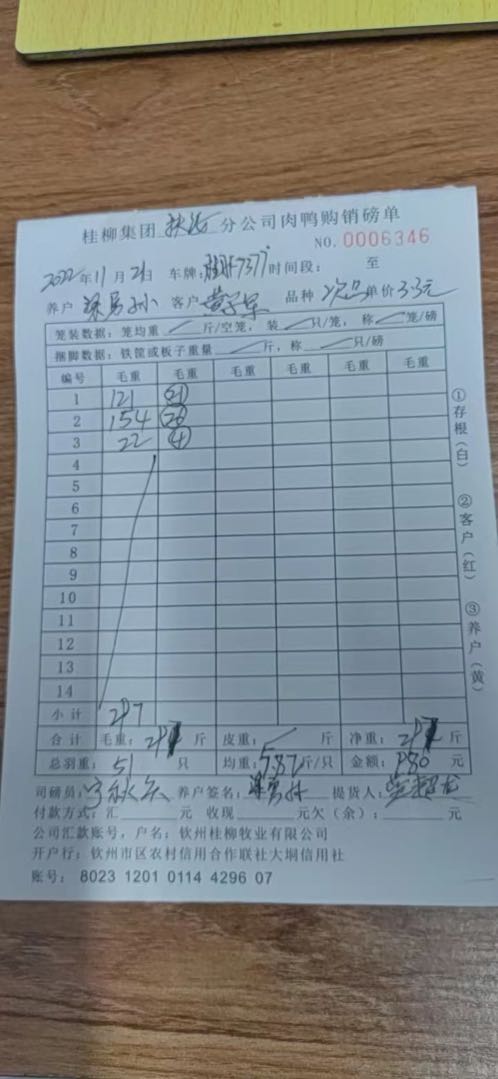 桂柳集团 扶绥 分公司肉鸭购销磅单
NO. 0006346
2022年11月21日 车牌: F7377 时间段: 至
养户 客户 品种 次品 单价 3.3元
笼装数据: 笼均重 / 斤/空笼, 装 / 只/笼, 称 / 笼/磅
捆脚数据: 铁筐或板子重量 / 斤, 称 / 只/磅
编号 毛重 毛重 毛重 毛重 毛重 毛重
1 121 21
2 154 26
3 22 4
4
5
6
7
8
9
10
11
12
13
14
小计 297
合计 毛重: 297 斤 皮重: / 斤 净重: 297 斤
总羽重: 51 只 均重: 5.82 斤/只 金额: 980 元
司磅员: 养户签名: 提货人:
付款方式: 汇 元 收现 元欠(余): 元
公司汇款账号, 户名: 钦州桂柳牧业有限公司
开户行: 钦州市区农村信用合作联社大垌信用社
账号: 8023 1201 0114 4296 07
①存根(白)
②客户(红)
③养户(黄)